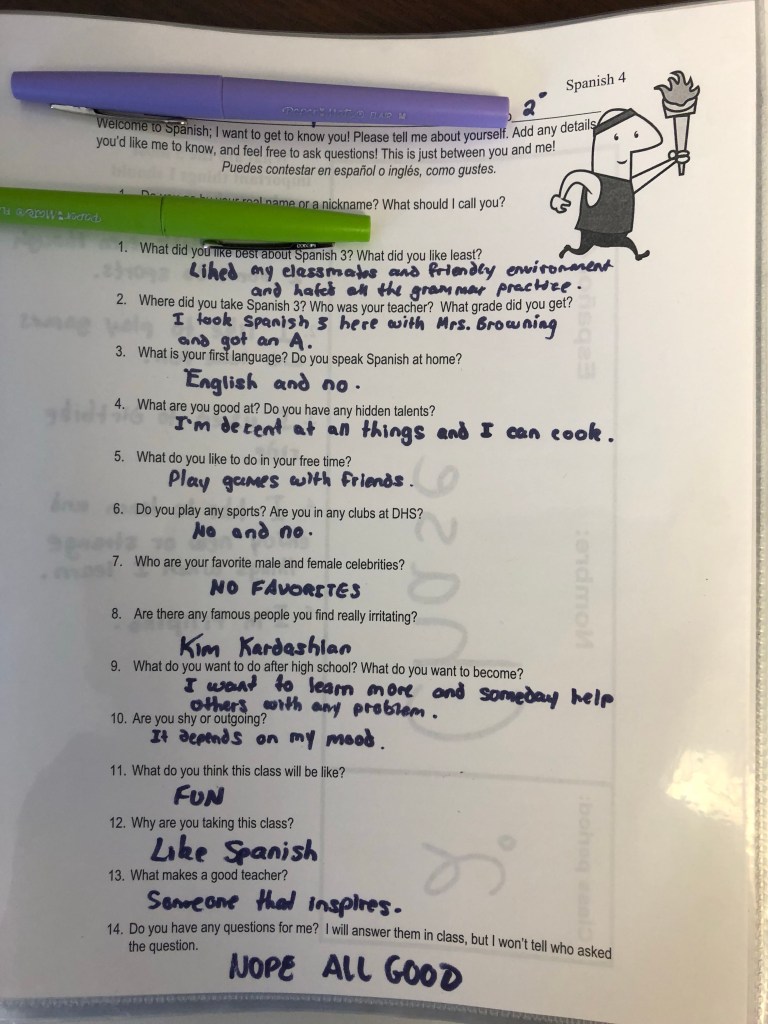 Spanish 4
2°
Welcome to Spanish; I want to get to know you! Please tell me about yourself. Add any details
you'd like me to know, and feel free to ask questions! This is just between you and me!
Puedes contestar en español o inglés, como gustes.
real name or a nickname? What should I call you?
PaperMate
1. What did you like best about Spanish 3? What did you like least?
Liked my classmates and friendly environment
and hated all the grammar practize.
2. Where did you take Spanish 3? Who was your teacher? What grade did you get?
I took Spanish 3 here with Mrs. Browning
and got an A.
3. What is your first language? Do you speak Spanish at home?
English and no.
4. What are you good at? Do you have any hidden talents?
I'm decent at all things and I can cook.
5. What do you like to do in your free time?
Play games with friends.
6. Do you play any sports? Are you in any clubs at DHS?
No and no.
7. Who are your favorite male and female celebrities?
NO FAVORITES
8. Are there any famous people you find really irritating?
Kim Kardashian
9. What do you want to do after high school? What do you want to become?
I want to learn more and someday help
others with any problem.
10. Are you shy or outgoing?
It depends on my mood.
11. What do you think this class will be like?
FUN
12. Why are you taking this class?
Like Spanish
13. What makes a good teacher?
Someone that inspires.
14. Do you have any questions for me? I will answer them in class, but I won't tell who asked
the question.
NOPE ALL GOOD